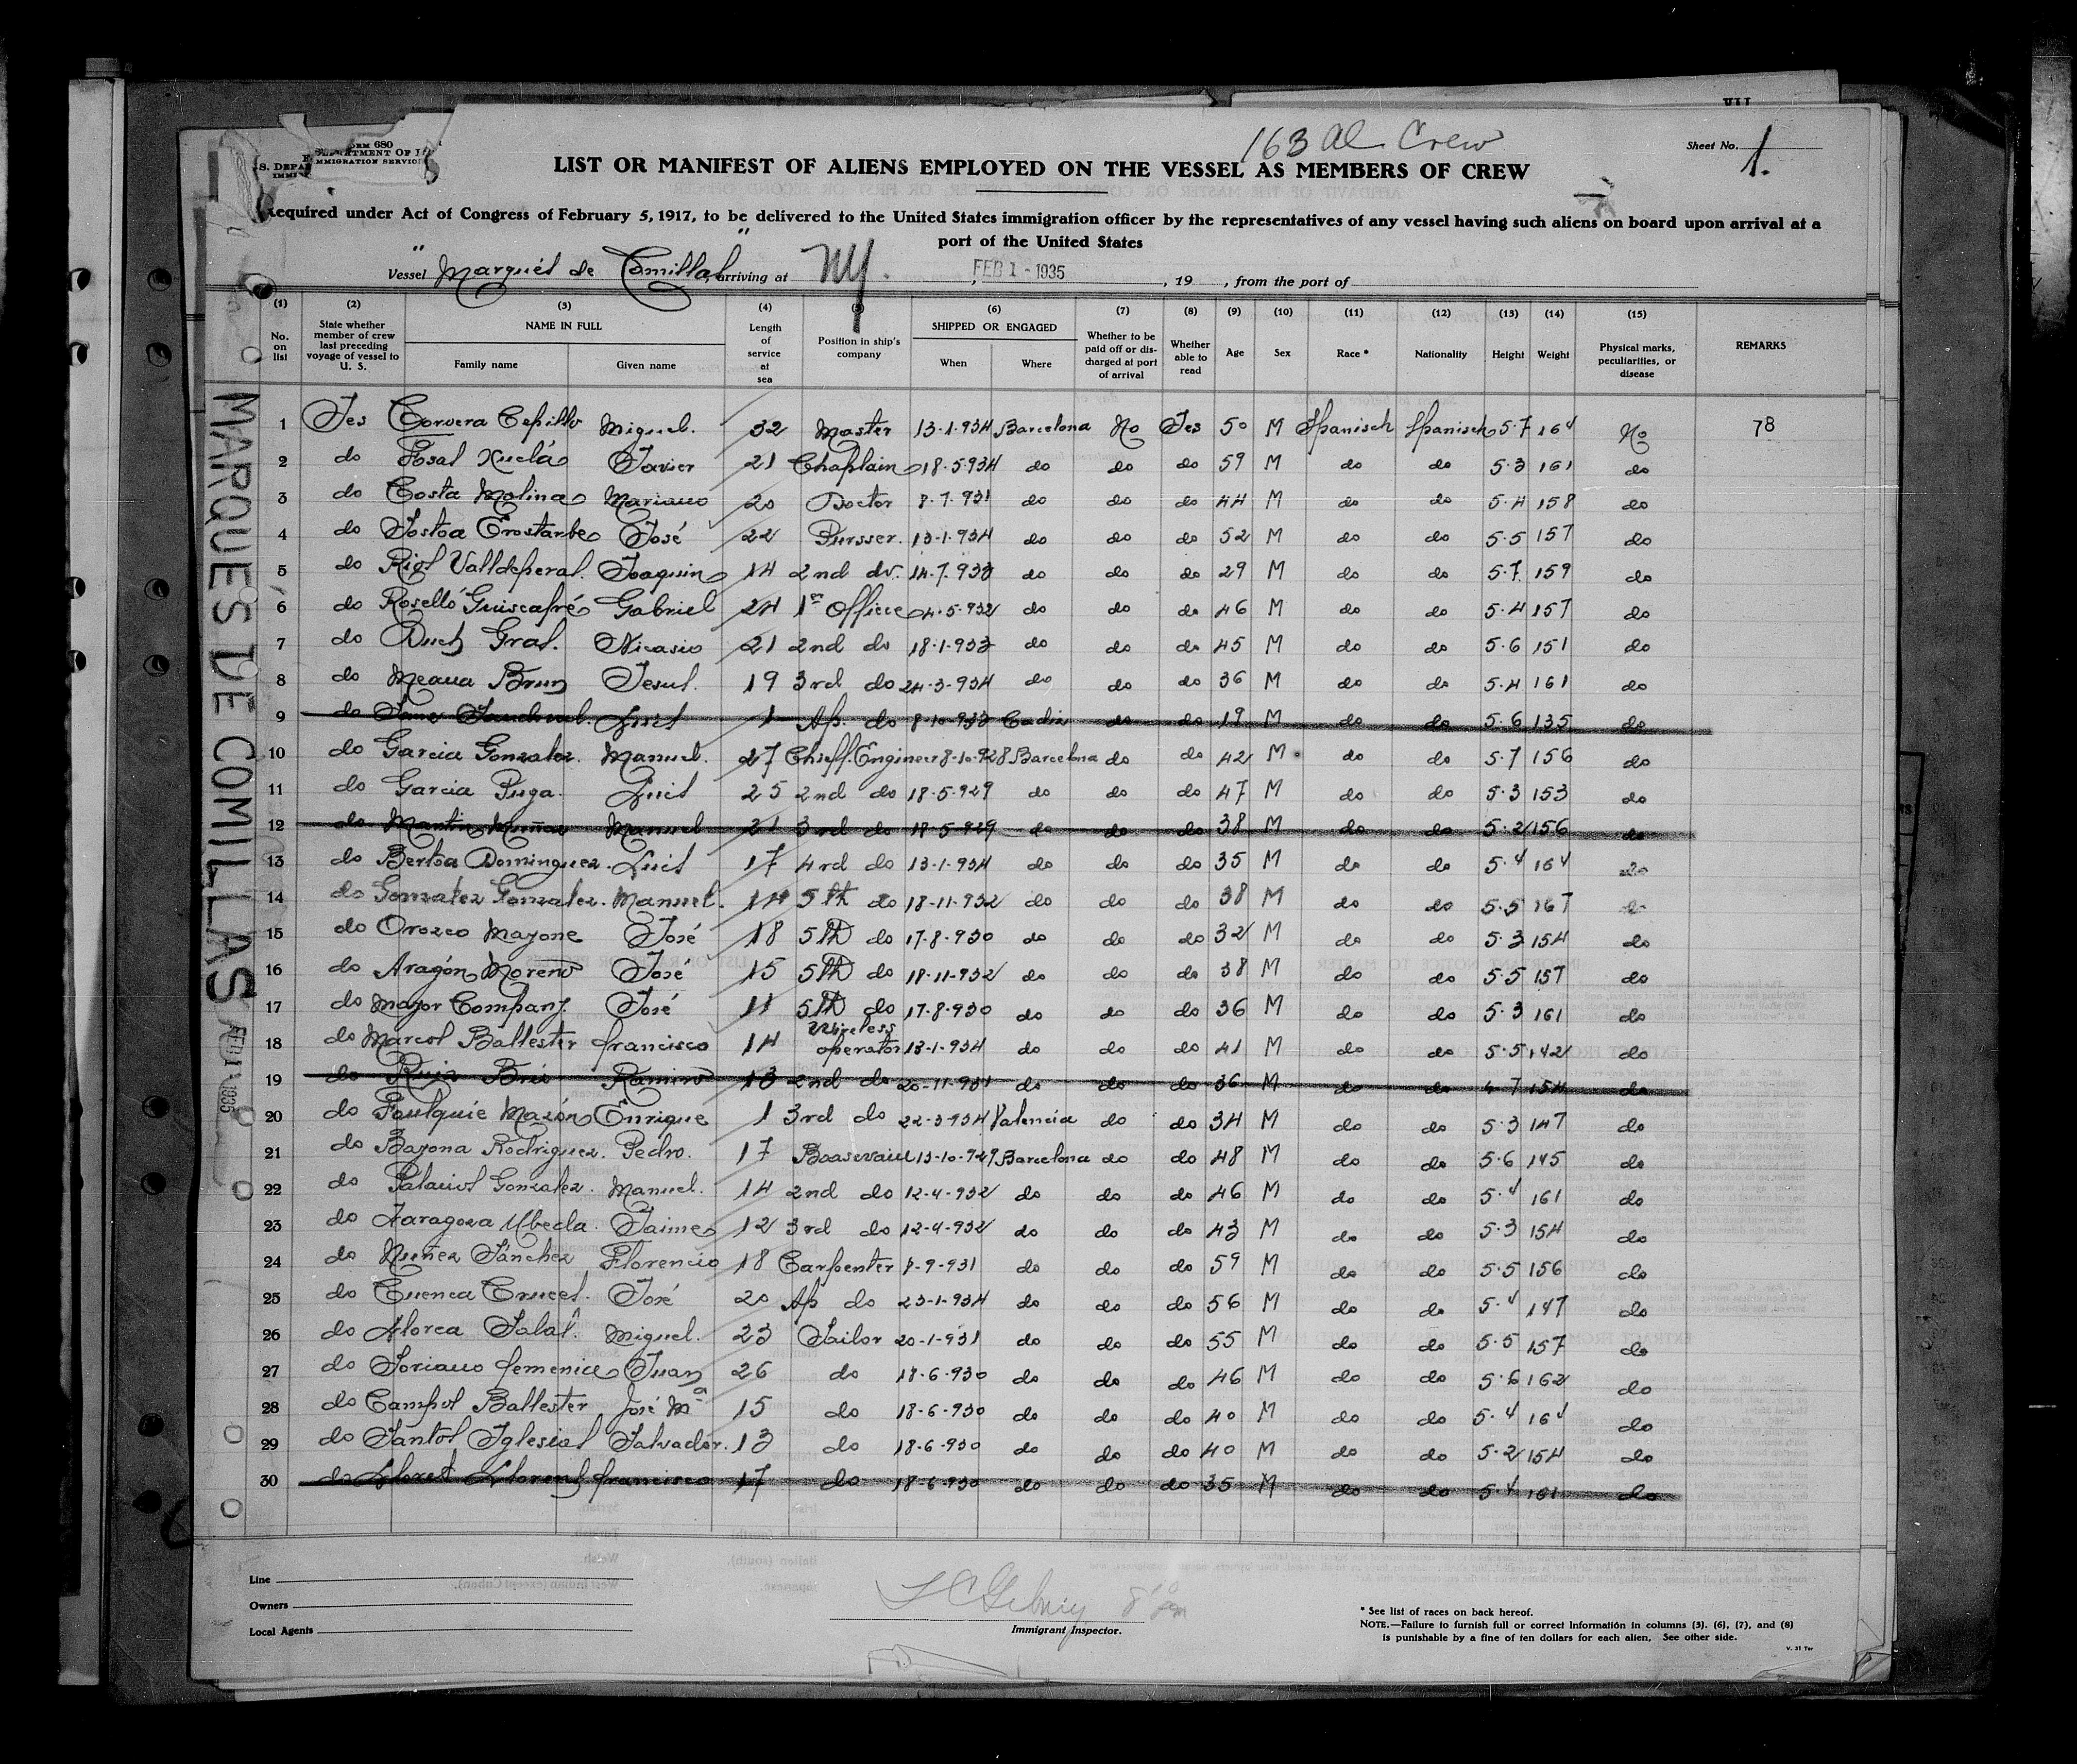 163 al. Crew
Sheet No. 1.
FORM 680
LIST OR MANIFEST OF ALIENS EMPLOYED ON THE VESSEL AS MEMBERS OF CREW
Required under Act of Congress of February 5, 1917, to be delivered to the United States immigration officer by the representatives of any vessel having such aliens on board upon arrival at a
port of the United States
Vessel "Marqués de Comillas" arriving at NY. , FEB 1 - 1935 , 19 , from the port of
(1) (2) (3) (4) (5) (6) (7) (8) (9) (10) (11) (12) (13) (14) (15)
No. on list State whether member of crew last preceding voyage of vessel to U. S. NAME IN FULL Family name Given name Length of service at sea Position in ship's company SHIPPED OR ENGAGED When Where Whether to be paid off or discharged at port of arrival Whether able to read Age Sex Race * Nationality Height Weight Physical marks, peculiarities, or disease REMARKS
1 Yes Corvera Cepillo Miguel. 32 Master 13-1-934 Barcelona No Yes 50 M Spanisch Spanisch 5-7 164 No 78
2 do Fosal Xuclá Javier 21 Chaplain 18-5-934 do do do 59 M do do 5-3 161 do
3 do Costa Molina Mariano 20 Doctor 8-7-931 do do do 44 M do do 5-4 158 do
4 do Tostoa Erostarbe José 22 Pursser. 13-1-934 do do do 52 M do do 5-5 157 do
5 do Riol Valldeperal. Joaquin 14 2nd do. 14-7-933 do do do 29 M do do 5-7 159 do
6 do Roselló Guiscafré Gabriel 24 1er Officer 4-5-932 do do do 46 M do do 5-4 157 do
7 do Duch Gral. Nicasio 21 2nd do 18-1-933 do do do 45 M do do 5-6 151 do
8 do Meaua Brun Jesus. 19 3rd do 24-3-934 do do do 36 M do do 5-4 161 do
9 do Sanz Sandoval. Luis 1 Ap. do 8-10-933 Cadiz do do 19 M do do 5-6 135 do
10 do Garcia Gonzalez. Manuel. 27 Chieff. Engineer 8-10-928 Barcelona do do 42 M do do 5-7 156 do
11 do Garcia Puga. Luis 25 2nd do 18-5-929 do do do 47 M do do 5-3 153 do
12 do Martin Muñoz Manuel 21 3rd do 18-5-929 do do do 38 M do do 5-2 156 do
13 do Bertoa Dominguez. Luis 17 4rd do 13-1-934 do do do 35 M do do 5-4 164 do
14 do Gonzalez Gonzalez. Manuel. 14 5th do 18-11-932 do do do 38 M do do 5-5 167 do
15 do Orozco Mayone José 18 5th do 17-8-930 do do do 32 M do do 5-3 154 do
16 do Aragón Moreno José 15 5th do 18-11-932 do do do 38 M do do 5-5 157 do
17 do Mayor Company. José 11 5th do 17-8-930 do do do 36 M do do 5-3 161 do
18 do Marcos Ballester francisco 14 Wireless operator 13-1-934 do do do 41 M do do 5-5 142 do
19 do Ruiz Ramiro 13 2nd do 20-11-931 do do do 36 M do do 4-7 154 do
20 do Foulquie Mazón Enrique 1 3rd do 22-3-934 Valencia do do 34 M do do 5-3 147 do
21 do Bayona Rodriguez. Pedro. 17 13-10-929 Barcelona do do 48 M do do 5-6 145 do
22 do Palacios Gonzalez. Manuel. 14 2nd do 12-4-932 do do do 46 M do do 5-4 161 do
23 do Zaragoza Ubeda. Jaime 12 3rd do 12-4-932 do do do 43 M do do 5-3 154 do
24 do Nuñez Sánchez Florencio 18 Carpenter 1-9-931 do do do 59 M do do 5-5 156 do
25 do Cuenca Cruces. José 20 Ap do 23-1-934 do do do 56 M do do 5-4 147 do
26 do Llorca Salas. Miguel. 23 Sailor 20-1-931 do do do 55 M do do 5-5 157 do
27 do Soriano femenia Juan 26 do 18-6-930 do do do 46 M do do 5-6 162 do
28 do Campos Ballester José Mª 15 do 18-6-930 do do do 40 M do do 5-4 164 do
29 do Santos Iglesias Salvador. 13 do 18-6-930 do do do 40 M do do 5-2 154 do
30 do Lloret Llorens francisco 17 do 18-6-930 do do do 35 M do do 5-4 161 do
MARQUES DE COMILLAS FEB 1 1935
Line
Owners
Local Agents
Immigrant Inspector.
* See list of races on back hereof.
NOTE.—Failure to furnish full or correct information in columns (3), (6), (7), and (8)
is punishable by a fine of ten dollars for each alien. See other side.